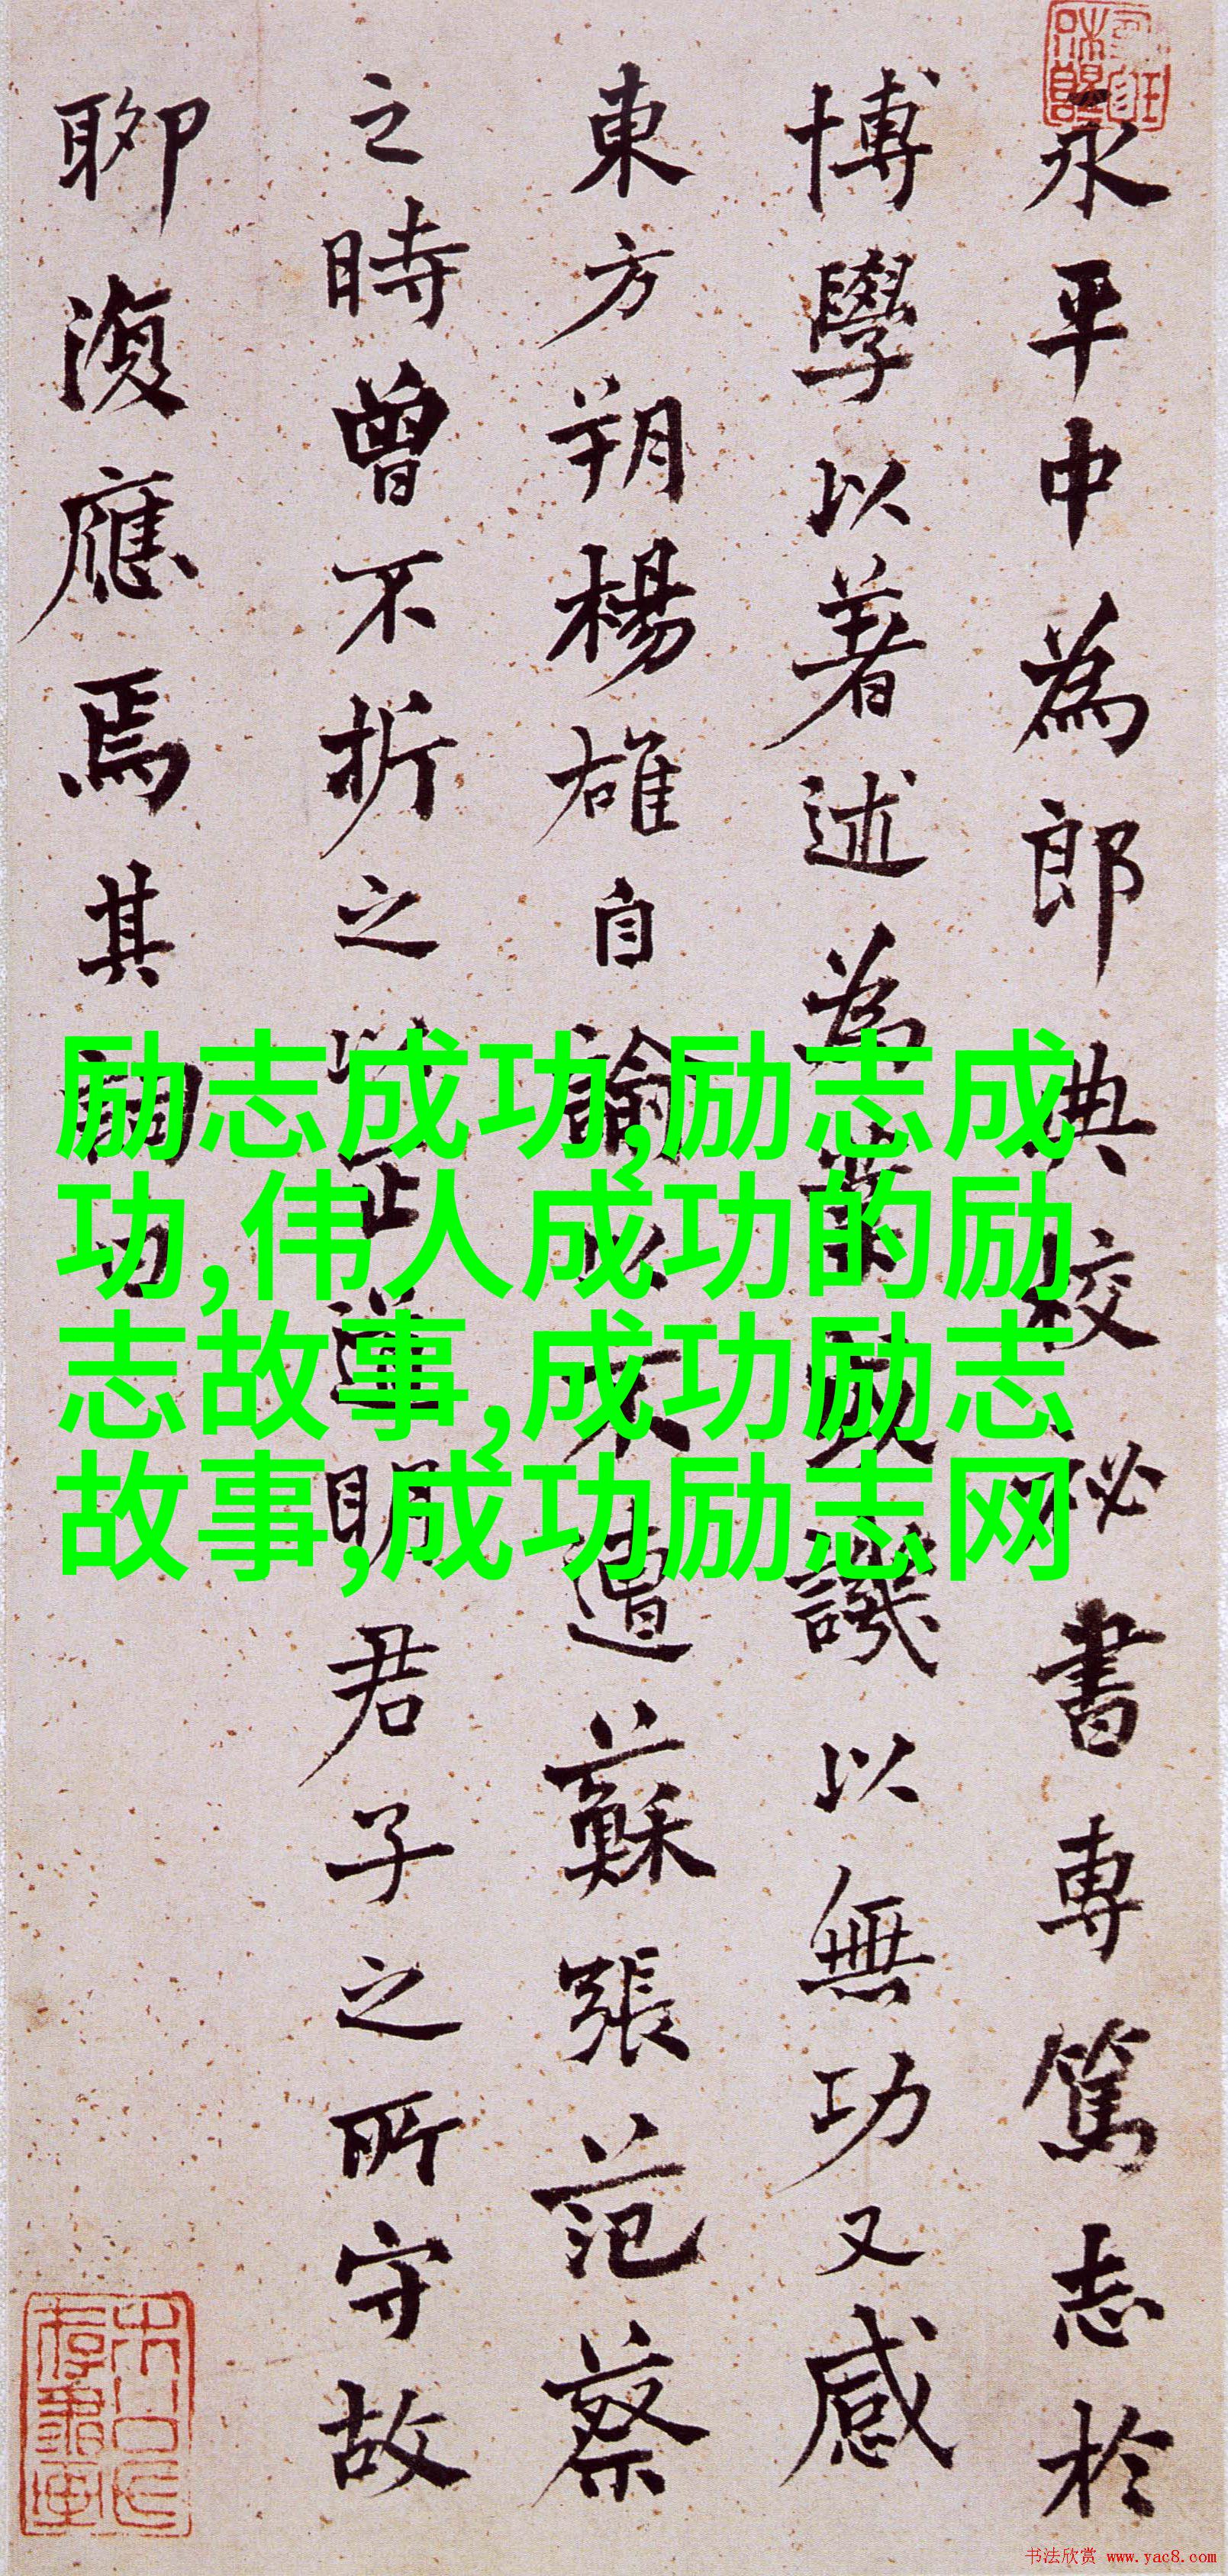 永平中為郎典校祕書專篤志於
博學以著述為業或譏以無功又感
東方朔楊雄自諭以不遭蘇張范蔡
之時曾不折之以正道明君子之所守故
聊復應焉其詞曰
励志成功,励志成
功,伟人成功的励
志故事,成功励志
故事,成功励志网
书法欣赏 www.yac8.com